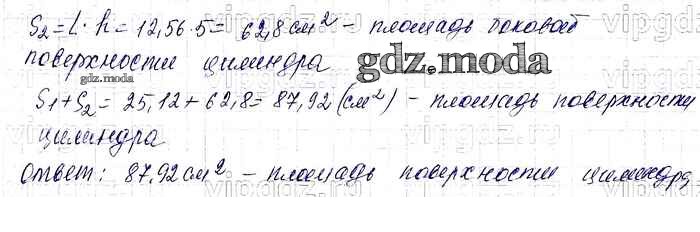 S₂ = L · h = 12,56 · 5 = 62,8 см² – площадь боковой
поверхности цилиндра
gdz.moda
gdz.moda
S₁ + S₂ = 25,12 + 62,8 = 87,92 (см²) – площадь поверхности
цилиндра
ответ: 87,92 см² – площадь поверхности цилиндра